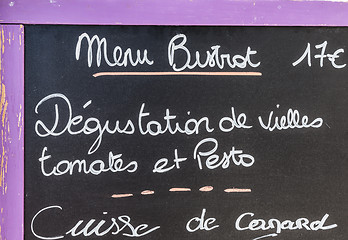 Menu Bistrot 17€
Dégustation de vielles
tomates et Pesto
Cuisse de Canard